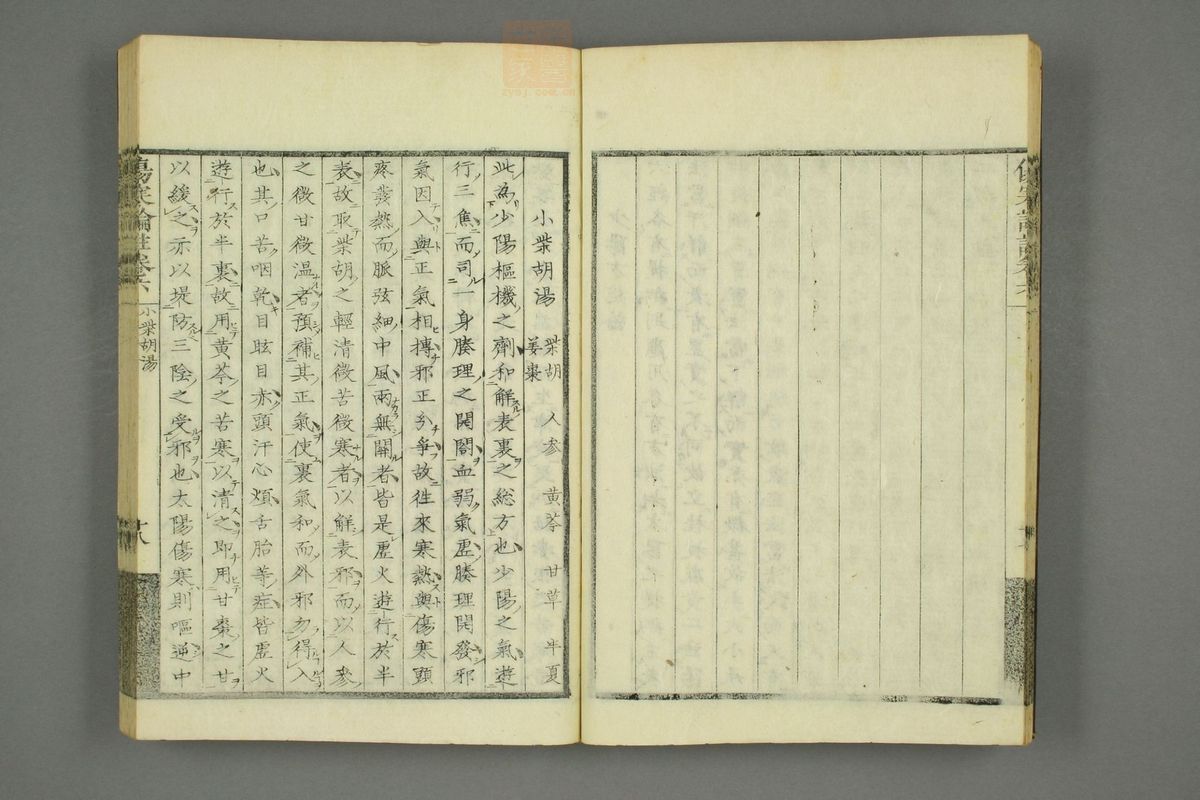 小柴胡湯
柴胡 人参 黄芩 甘草 半夏
姜棗
此為少陽樞機之劑和解表裏之総方也少陽之氣遊
行三焦而司一身腠理之開闔血弱氣虛腠理開發邪
氣因入與正氣相搏邪正分爭故徃來寒熱與傷寒頭
疼發熱而脈弦細中風兩無関者皆是虛火遊行於半
表故取柴胡之輕清微苦微寒者以解表邪而以人參
之微甘微温者預補其正氣使裏氣和而外邪勿得入
也其口苦咽乾目眩目赤頭汗心煩舌胎等症皆虛火
遊行於半裏故用黄芩之苦寒以清之即用甘棗之甘
以緩之亦以堤防三陰之受邪也太陽傷寒則嘔逆中
傷寒論註卷六
小柴胡湯
廿八
zysj.com.cn